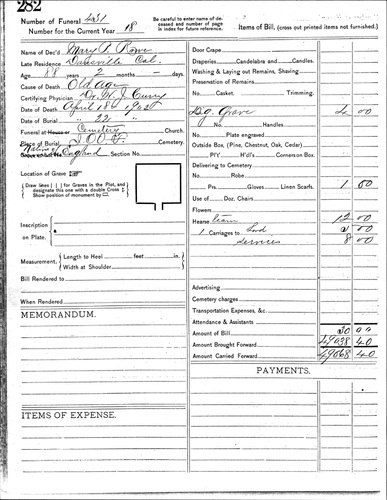 282
Number of Funeral 4231
Number for the Current Year 18
Be carefull to enter name of deceased and number of page in index for future reference.
Items of Bill, (cross out printed items not furnished.)
Name of Dec'd Mary P. Rowe
Late Residence Cal.
Age 88 years 2 months – days.
Cause of Death Old Age
Certifying Physician Dr. W. J. Curry
Date of Death April 18th 1920
Date of Burial " 22 "
Funeral at House or Cemetery Church.
Place of Burial I.O.O.F. Cemetery.
Native of England Section No.
Location of Grave
Draw lines [ ] for Graves in the Plot, and designate this one with a double Cross
Show position of monument by
Inscription
on Plate.
Measurement. Length to Heel feet in.
Width at Shoulder
Bill Rendered to
When Rendered
MEMORANDUM.
ITEMS OF EXPENSE.
Door Crape
Draperies Candelabra and Candles.
Washing & Laying out Remains, Shaving
Preservation of Remains
No. Casket. Trimming.
Dg. Grave 00
No. Handles
Plate engraved
Outside Box, (Pine, Chestnut, Oak, Cedar)
PlY H'dl's Corners on Box.
Delivering to Cemetery
No. Robe
Prs. Gloves Linen Scarfs. 1 00
Use of Doz. Chairs
Flowers
Hearse team 12 00
1 Carriages to 00
Services 8 00
Advertising
Cemetery charges
Transportation Expenses, &c.
Attendance & Assistants
Amount of Bill 30 00
Amount Brought Forward 49038 40
Amount Carried Forward 49068 40
PAYMENTS.